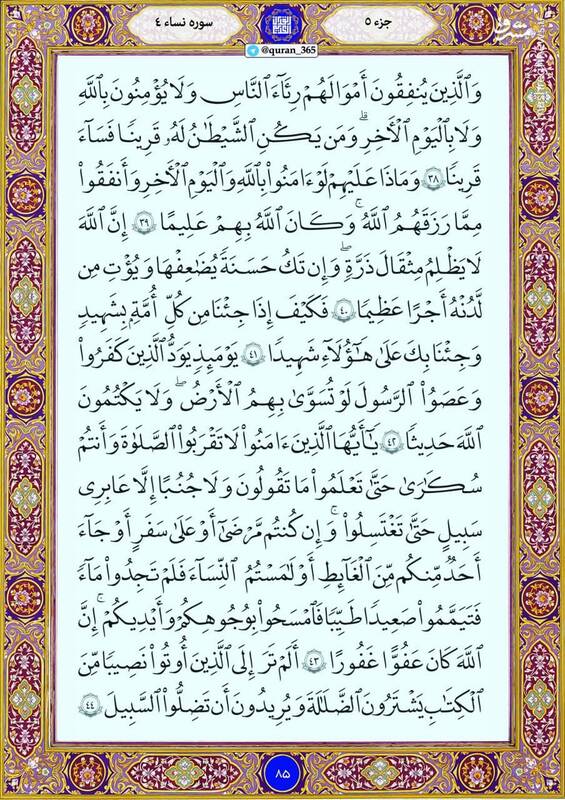 جزء ٥
سوره نساء ٤
مشرق
@quran_365
وَٱلَّذِينَ يُنفِقُونَ أَمْوَٰلَهُمْ رِئَآءَ ٱلنَّاسِ وَلَا يُؤْمِنُونَ بِٱللَّهِ
وَلَا بِٱلْيَوْمِ ٱلْأَخِرِۗ وَمَن يَكُنِ ٱلشَّيْطَٰنُ لَهُۥ قَرِينًا فَسَآءَ
قَرِينًا ٣٨ وَمَاذَا عَلَيْهِمْ لَوْ ءَامَنُوا۟ بِٱللَّهِ وَٱلْيَوْمِ ٱلْأَخِرِ وَأَنفَقُوا۟
مِمَّا رَزَقَهُمُ ٱللَّهُۚ وَكَانَ ٱللَّهُ بِهِمْ عَلِيمًا ٣٩ إِنَّ ٱللَّهَ
لَا يَظْلِمُ مِثْقَالَ ذَرَّةٍۖ وَإِن تَكُ حَسَنَةً يُضَٰعِفْهَا وَيُؤْتِ مِن
لَّدُنْهُ أَجْرًا عَظِيمًا ٤٠ فَكَيْفَ إِذَا جِئْنَا مِن كُلِّ أُمَّةٍۭ بِشَهِيدٍ
وَجِئْنَا بِكَ عَلَىٰ هَٰٓؤُلَآءِ شَهِيدًا ٤١ يَوْمَئِذٍ يَوَدُّ ٱلَّذِينَ كَفَرُوا۟
وَعَصَوُا۟ ٱلرَّسُولَ لَوْ تُسَوَّىٰ بِهِمُ ٱلْأَرْضُۖ وَلَا يَكْتُمُونَ
ٱللَّهَ حَدِيثًا ٤٢ يَٰٓأَيُّهَا ٱلَّذِينَ ءَامَنُوا۟ لَا تَقْرَبُوا۟ ٱلصَّلَوٰةَ وَأَنتُمْ
سُكَٰرَىٰ حَتَّىٰ تَعْلَمُوا۟ مَا تَقُولُونَ وَلَا جُنُبًا إِلَّا عَابِرِى
سَبِيلٍ حَتَّىٰ تَغْتَسِلُوا۟ۚ وَإِن كُنتُم مَّرْضَىٰٓ أَوْ عَلَىٰ سَفَرٍ أَوْ جَآءَ
أَحَدٌ مِّنكُم مِّنَ ٱلْغَآئِطِ أَوْ لَٰمَسْتُمُ ٱلنِّسَآءَ فَلَمْ تَجِدُوا۟ مَآءً
فَتَيَمَّمُوا۟ صَعِيدًا طَيِّبًا فَٱمْسَحُوا۟ بِوُجُوهِكُمْ وَأَيْدِيكُمْۗ إِنَّ
ٱللَّهَ كَانَ عَفُوًّا غَفُورًا ٤٣ أَلَمْ تَرَ إِلَى ٱلَّذِينَ أُوتُوا۟ نَصِيبًا مِّنَ
ٱلْكِتَٰبِ يَشْتَرُونَ ٱلضَّلَٰلَةَ وَيُرِيدُونَ أَن تَضِلُّوا۟ ٱلسَّبِيلَ ٤٤
٨٥